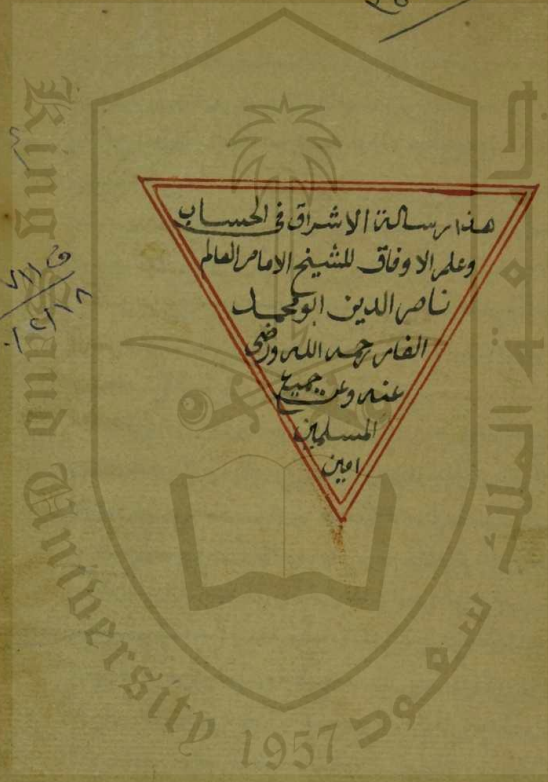 هذا رسالة الاشراق فى الحساب
وعلم الاوفاق للشيخ الامام العالم
ناصر الدين ابو محمد
رحمه الله ورضى
عنه وعن جميع
المسلمين
امين
King Saud University 1957
جامعة الملك سعود